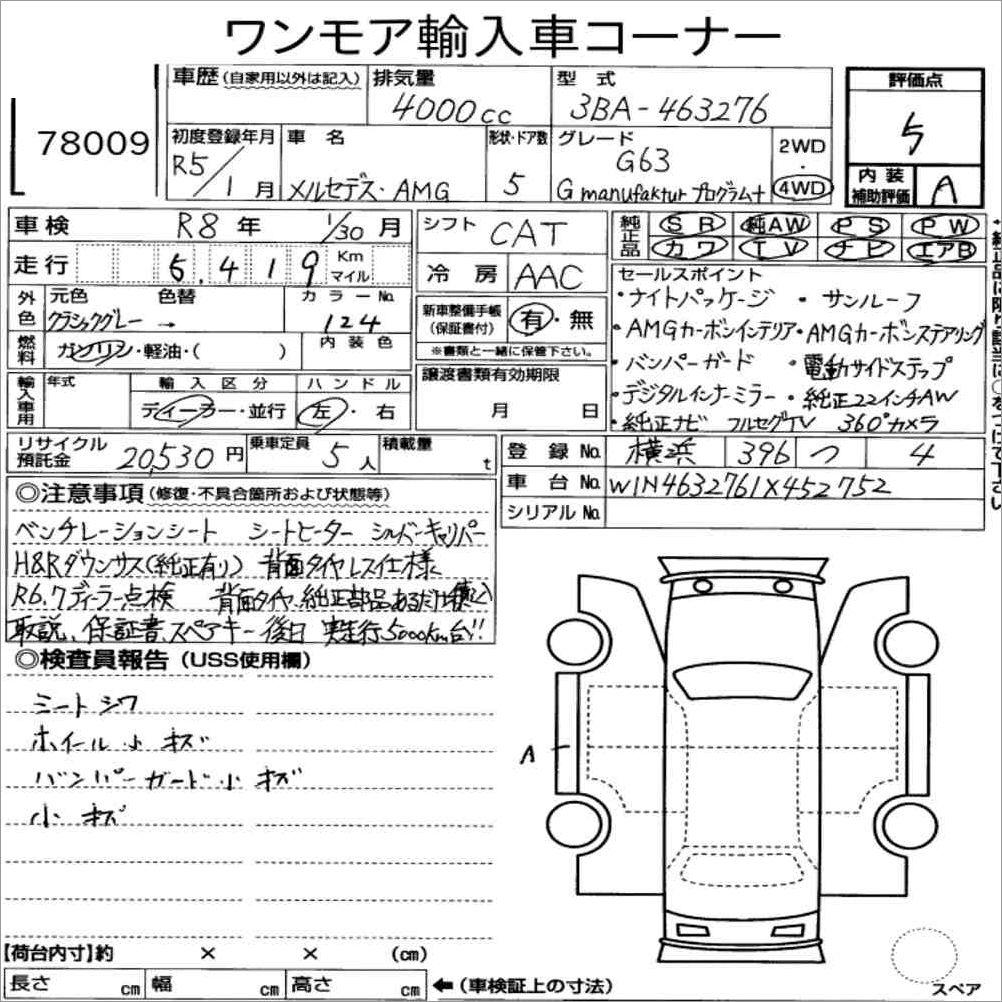 ワンモア輸入車コーナー
78009
車歴(自家用以外は記入)
排気量
4000cc
型式
3BA-463276
評価点
5
初度登録年月
R5/1月
車名
メルセデス・AMG
形状・ドア数
5
グレード
G63
G manufaktur プログラム+
2WD
4WD
内装補助評価
A
車検 R8年 1/30月
シフト CAT
純正品
SR 純AW PS PW
カワ TV ナビ エアB
走行 5.419 Km マイル
冷房 AAC
セールスポイント
・ナイトパッケージ ・サンルーフ
・AMGカーボンインテリア・AMGカーボンステアリング
・バンパーガード ・電動サイドステップ
・デジタルインナーミラー・純正22インチAW
・純正ナビ フルセグTV 360°カメラ
外色 元色 色替 カラーNo.
クラシックグレー → 124
内装色
新車整備手帳(保証書付) 有・無
※書類と一緒に保管下さい。
燃料 ガソリン・軽油・( )
譲渡書類有効期限
月 日
輸入車用 年式 輸入区分 ハンドル
ディーラー・並行 左・右
リサイクル預託金 20,530円
乗車定員 5人
積載量 t
登録No. 横浜 396 つ 4
車台No. W1N4632761X452752
シリアルNo.
◎注意事項(修復・不具合箇所および状態等)
ベンチレーションシート シートヒーター シルバーキャリパー
H&Rダウンサス(純正有り) 背面タイヤレス仕様
R6.7ディーラー点検 背面タイヤ、純正部品あるだけ積込
取説、保証書、スペアキー後日 実走行5000km台!!
◎検査員報告(USS使用欄)
シートシワ
ホイール小キズ
バンパーガード小キズ
小キズ
A
【荷台内寸】約 × × (cm)
長さ cm 幅 cm 高さ cm ←(車検証上の寸法)
スペア